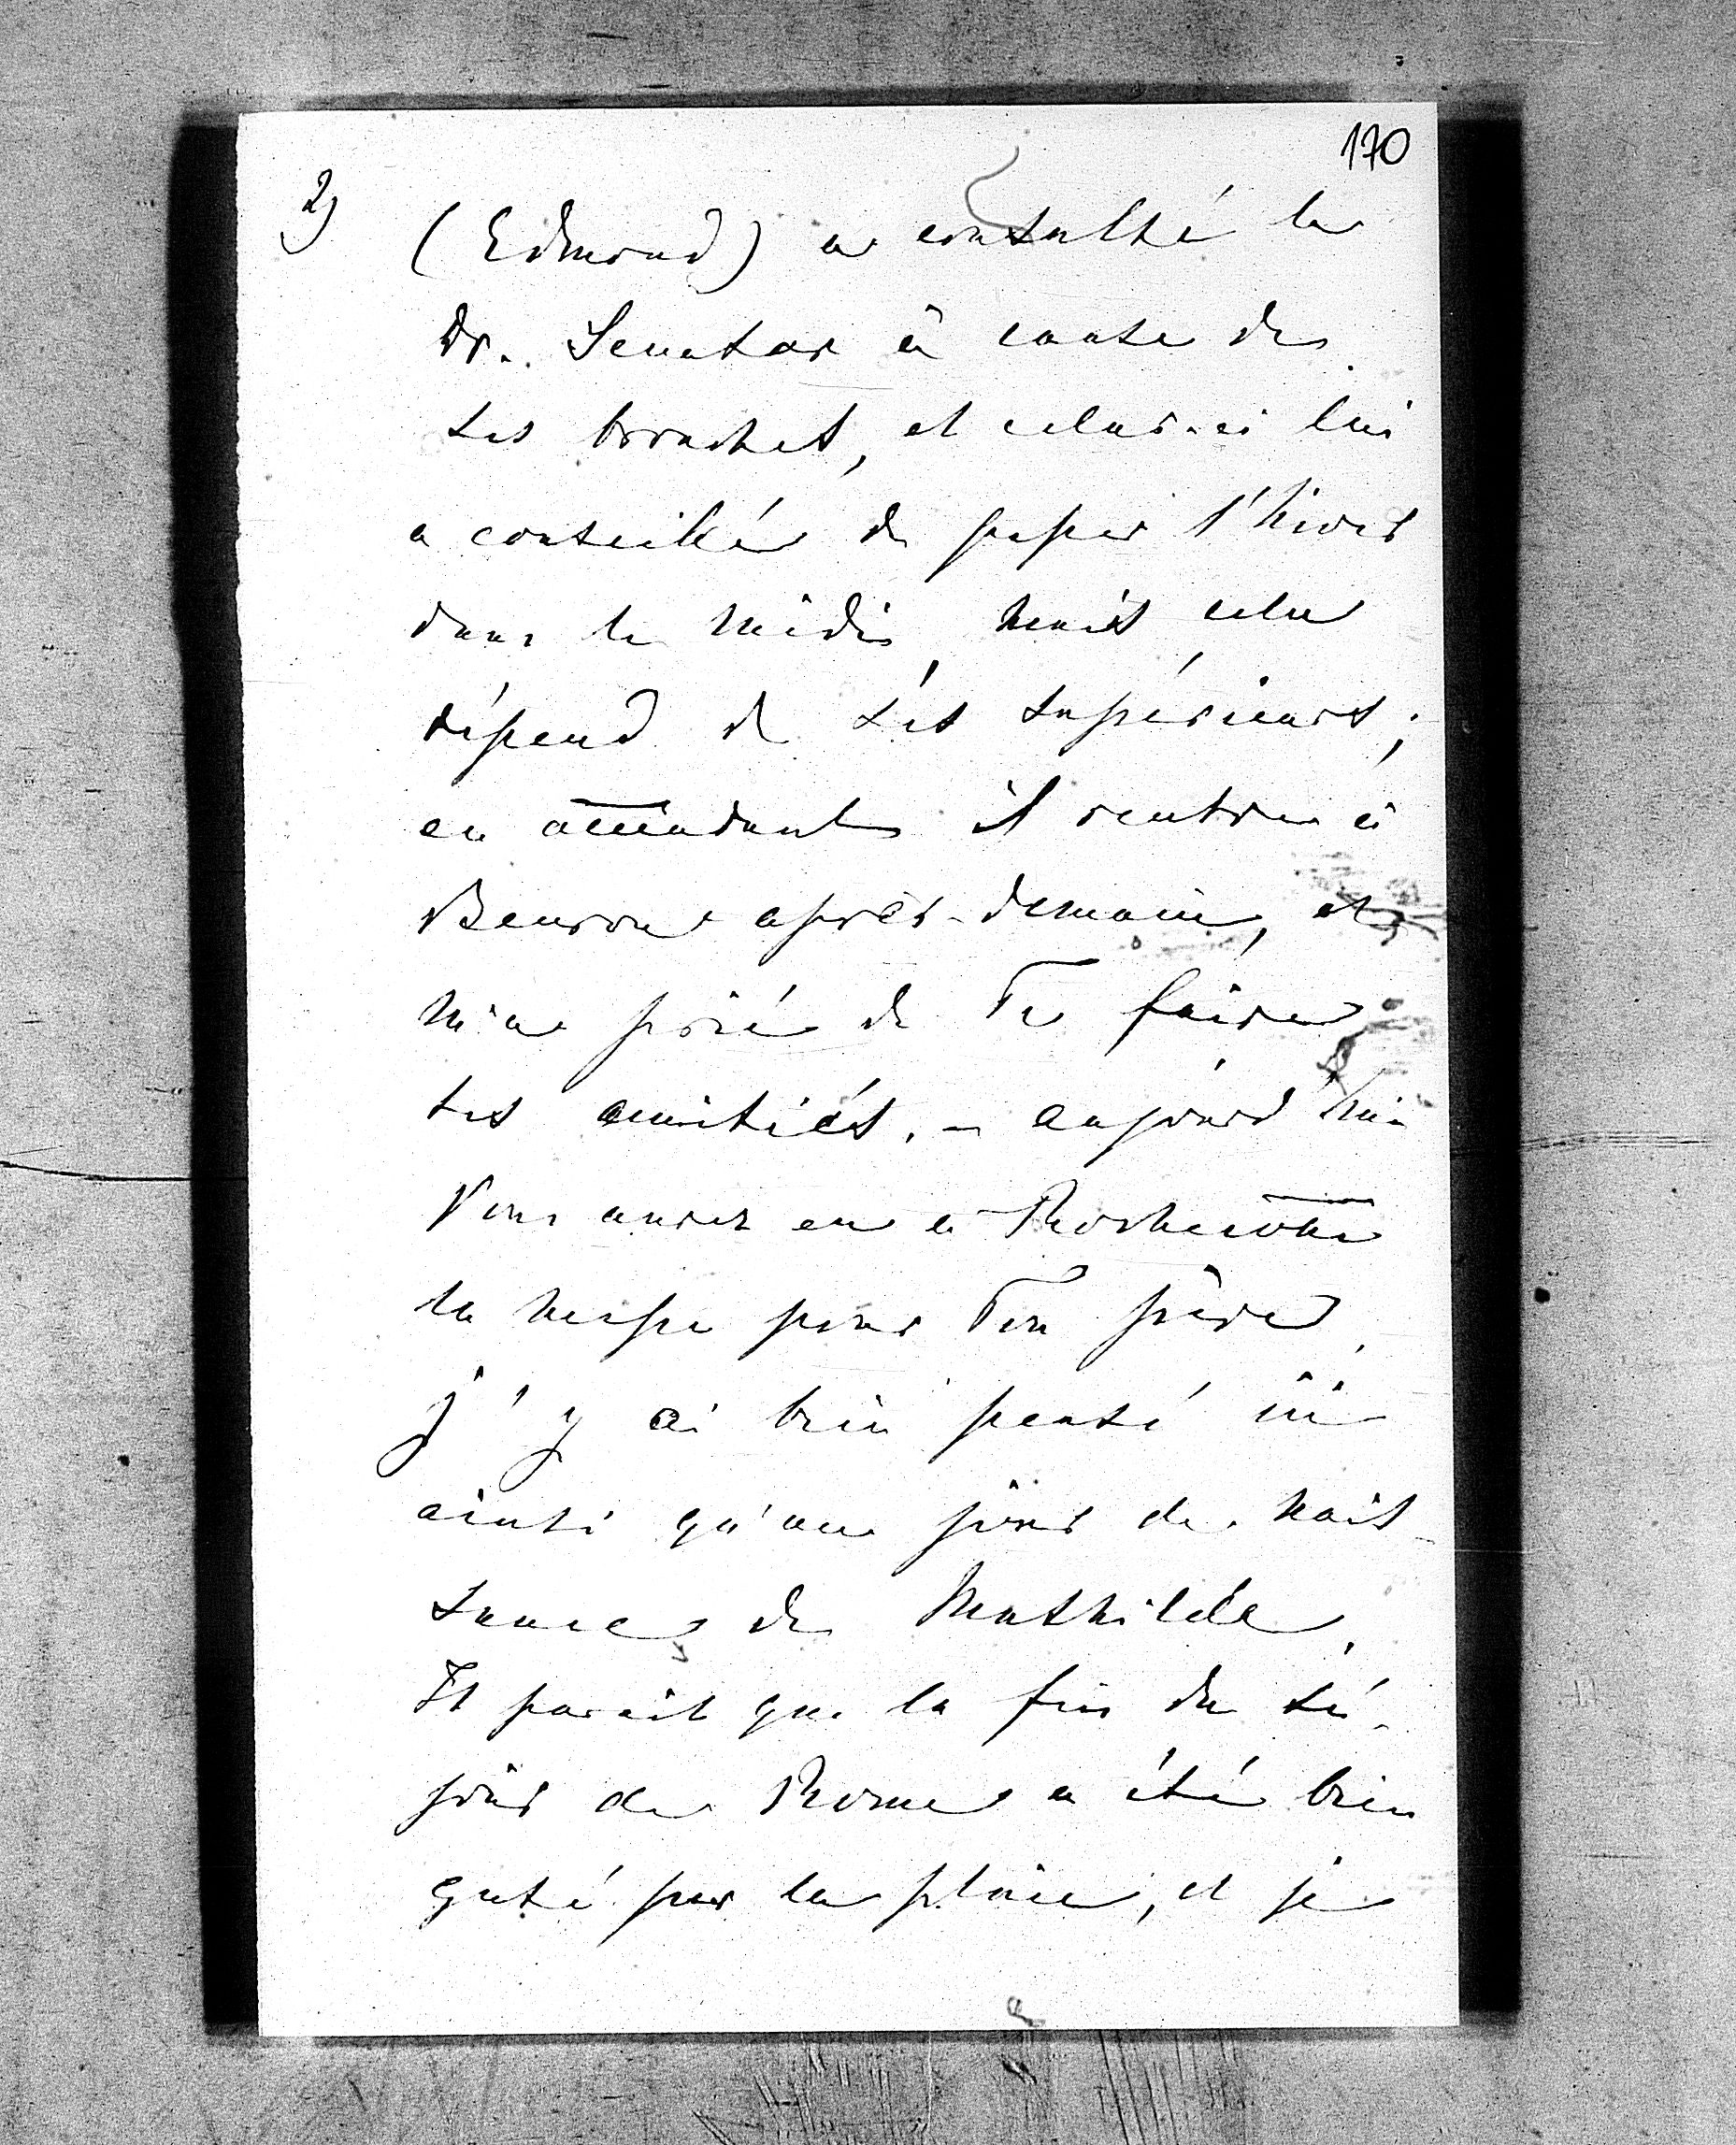 170
2) (Edmond) a consulté le
Dr. Senator à cause de
ses bronches, et celui-ci lui
a conseillé de passer l'hiver
dans le midi, mais cela
dépend de ses supérieurs;
en attendant il rentre à
Beuron après-demain, et
m'a prié de Te faire
ses amitiés. – aujourd'hui
Vous aurez eu à
la messe pour Ton père,
j'y ai bien pensé ici
ainsi qu'au jour de nais-
sance de Mathilde.
Il parait que la fin du sé-
jour de Rome a été bien
gaté par la pluie, et je